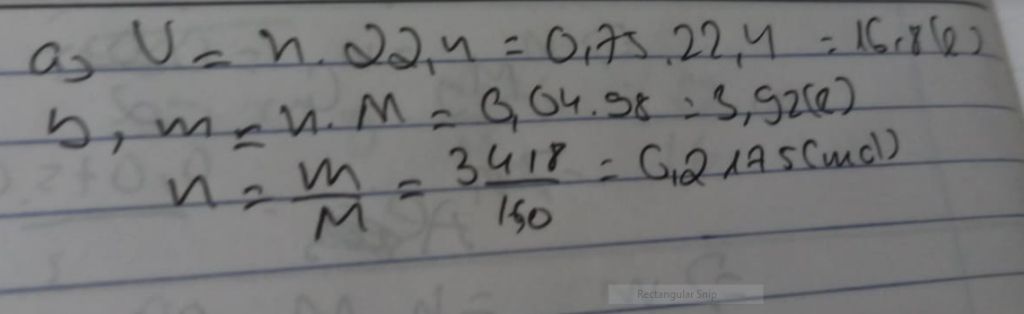 a, V = n.22,4 = 0,75.22,4 = 16,8(l)
b, m = n.M = 0,04.98 = 3,92(l)
n = m/M = 34,8/160 = 0,2175(mol)
Rectangular Snip